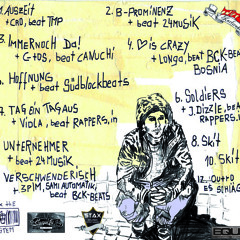 1. AUSZEIT
+ CRO, beat TMP
2. B-PROMINENZ
+ beat 24MUSIK
3. IMMERNOCH DA!
+ GTOS, beat CANUCHI
4. ♡ is CRAZY
+ LONGA, beat BCK-BEATS
BOSNIA
5. HOFFNUNG
+ beat SÜDBLOCKBEATS
6. SOLDIERS
+ J.DIZZLE, beat
RAPPERS.IN
7. TAG EIN TAG AUS
+ VIOLA, beat RAPPERS.IN
UNTERNEHMER
+ beat 24MUSIK
8. SKIT
VERSCHWENDERISCH
+ 3PIM, SAMI AUTOMATIKI
beat BCK-BEATS
10. SKIT
12. OUTRO
ES SCHLÄG
STAX
STEM
EQUI